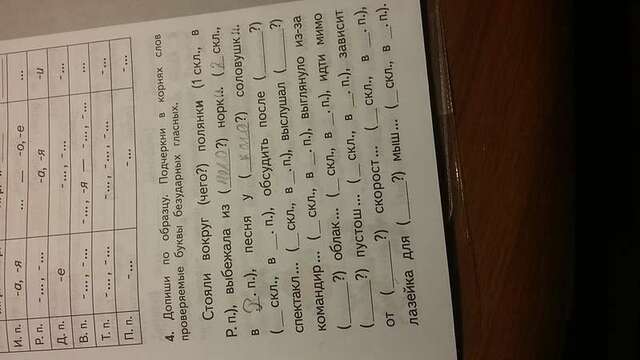 И. п. -а, -я ... — -о, -е ...
Р. п. -..., -... -а, -я -и
Д. п. -е -..., -... -...
В. п. -..., -... -..., -я — -..., -... ...
Т. п. -..., -... -..., -... -...
П. п. -... -... -...
4. Допиши по образцу. Подчеркни в корнях слов
проверяемые буквы безударных гласных.
Стояли вокруг (чего?) полянки (1 скл., в
Р. п.), выбежала из (чего?) норки. (_ скл.,
в Р. п.), песня у (кого?) соловушки.
(_ скл., в _. п.), обсудить после (____?)
спектакл... (_ скл., в _. п.), выслушал (____?)
командир... (_ скл., в _. п.), выглянуло из-за
(____?) облак... (_ скл., в _. п.), идти мимо
(____?) пустош... (_ скл., в _. п.), зависит
от (____?) скорост... (_ скл., в _. п.),
лазейка для (____?) мыш... (_ скл., в _. п.).